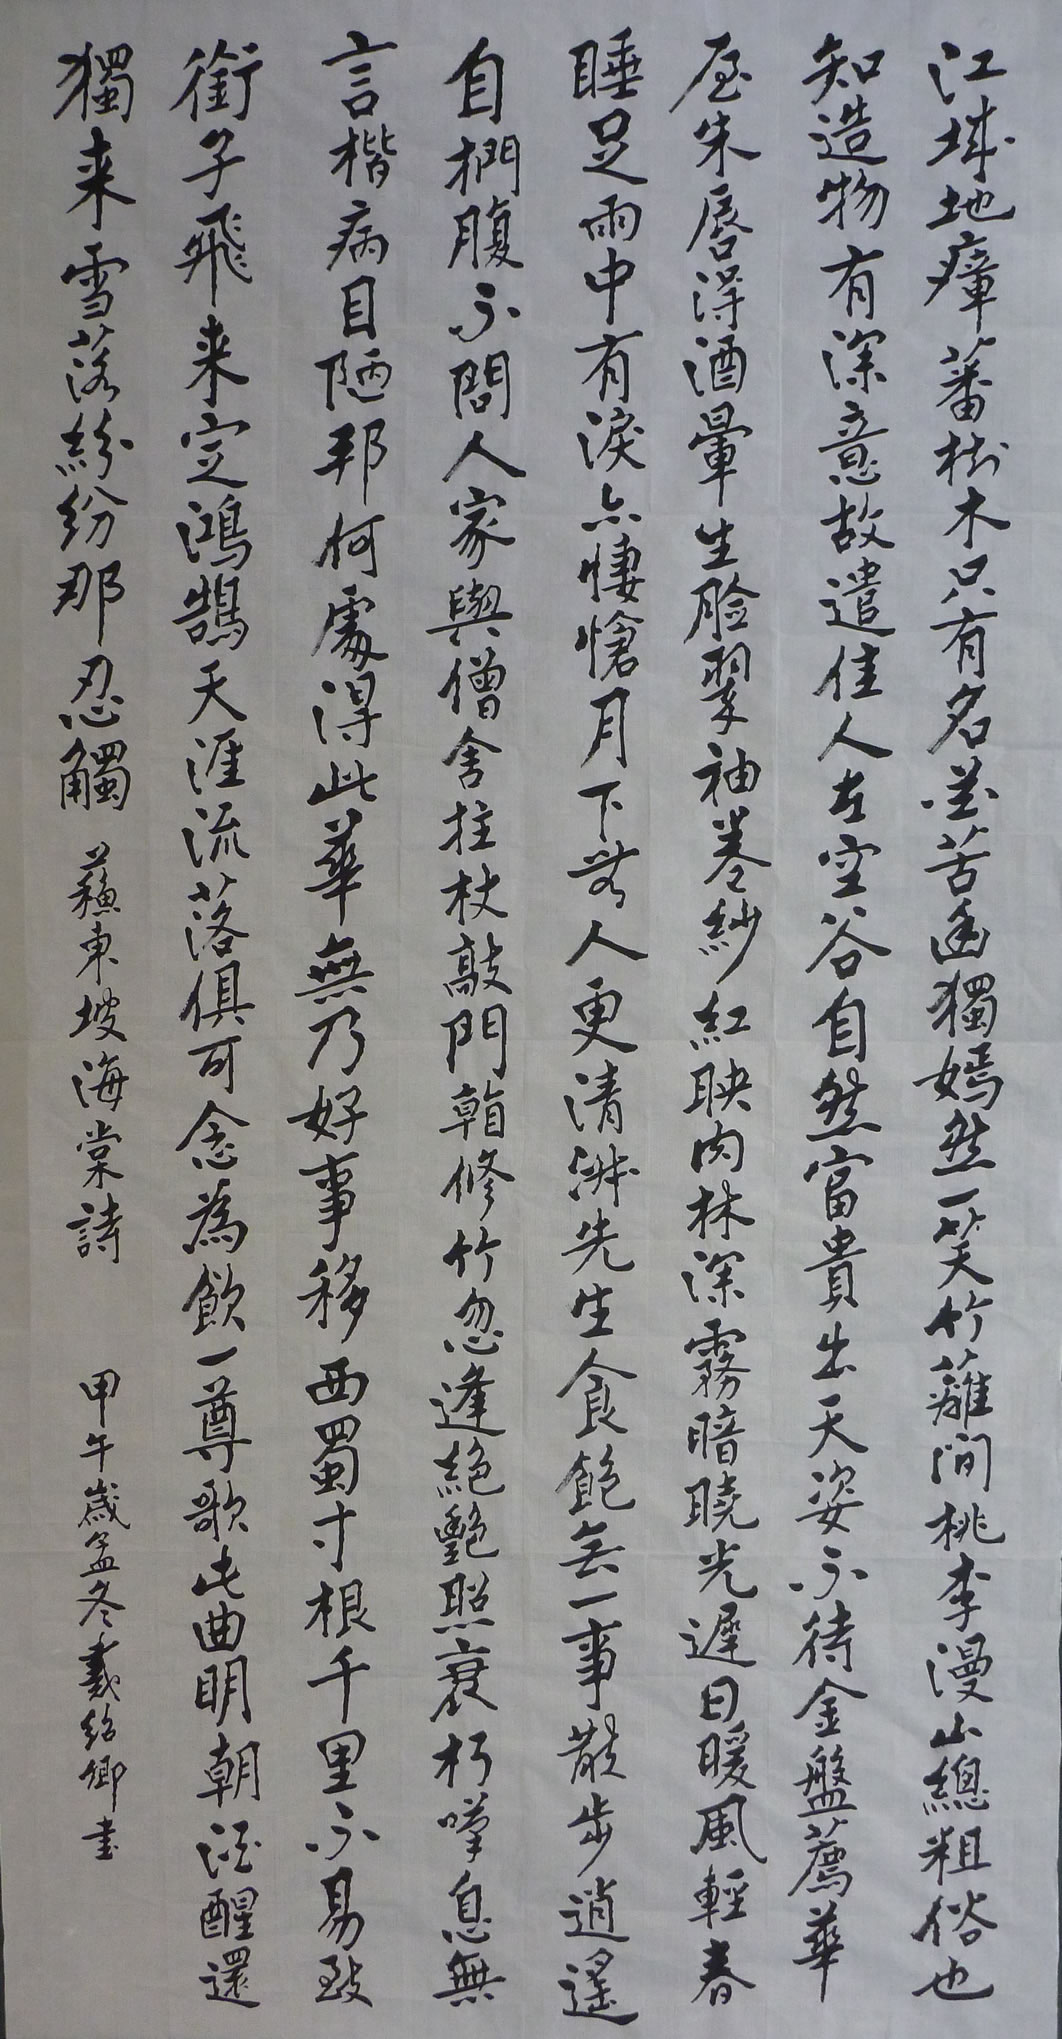 江城地瘴蕃樹木只有名花苦幽獨嫣然一笑竹蘺間桃李漫山總粗俗也
知造物有深意故遣佳人在空谷自然富貴出天姿不待金盤薦華
屋朱唇得酒暈生臉翠袖卷紗紅映肉林深霧暗曉光遲日暖風輕春
睡足雨中有淚亦悽愴月下無人更清淑先生食飽無一事散步逍遙
自捫腹不問人家與僧舍拄杖敲門看修竹忽逢絕艷照衰朽嘆息無
言楷病目陋邦何處得此華無乃好事移西蜀寸根千里不易致
銜子飛來定鴻鵠天涯流落俱可念為飲一尊歌此曲明朝酒醒還
獨来雪落紛紛那忍觸 蘇東坡海棠詩 甲午歲孟冬戴紹卿書